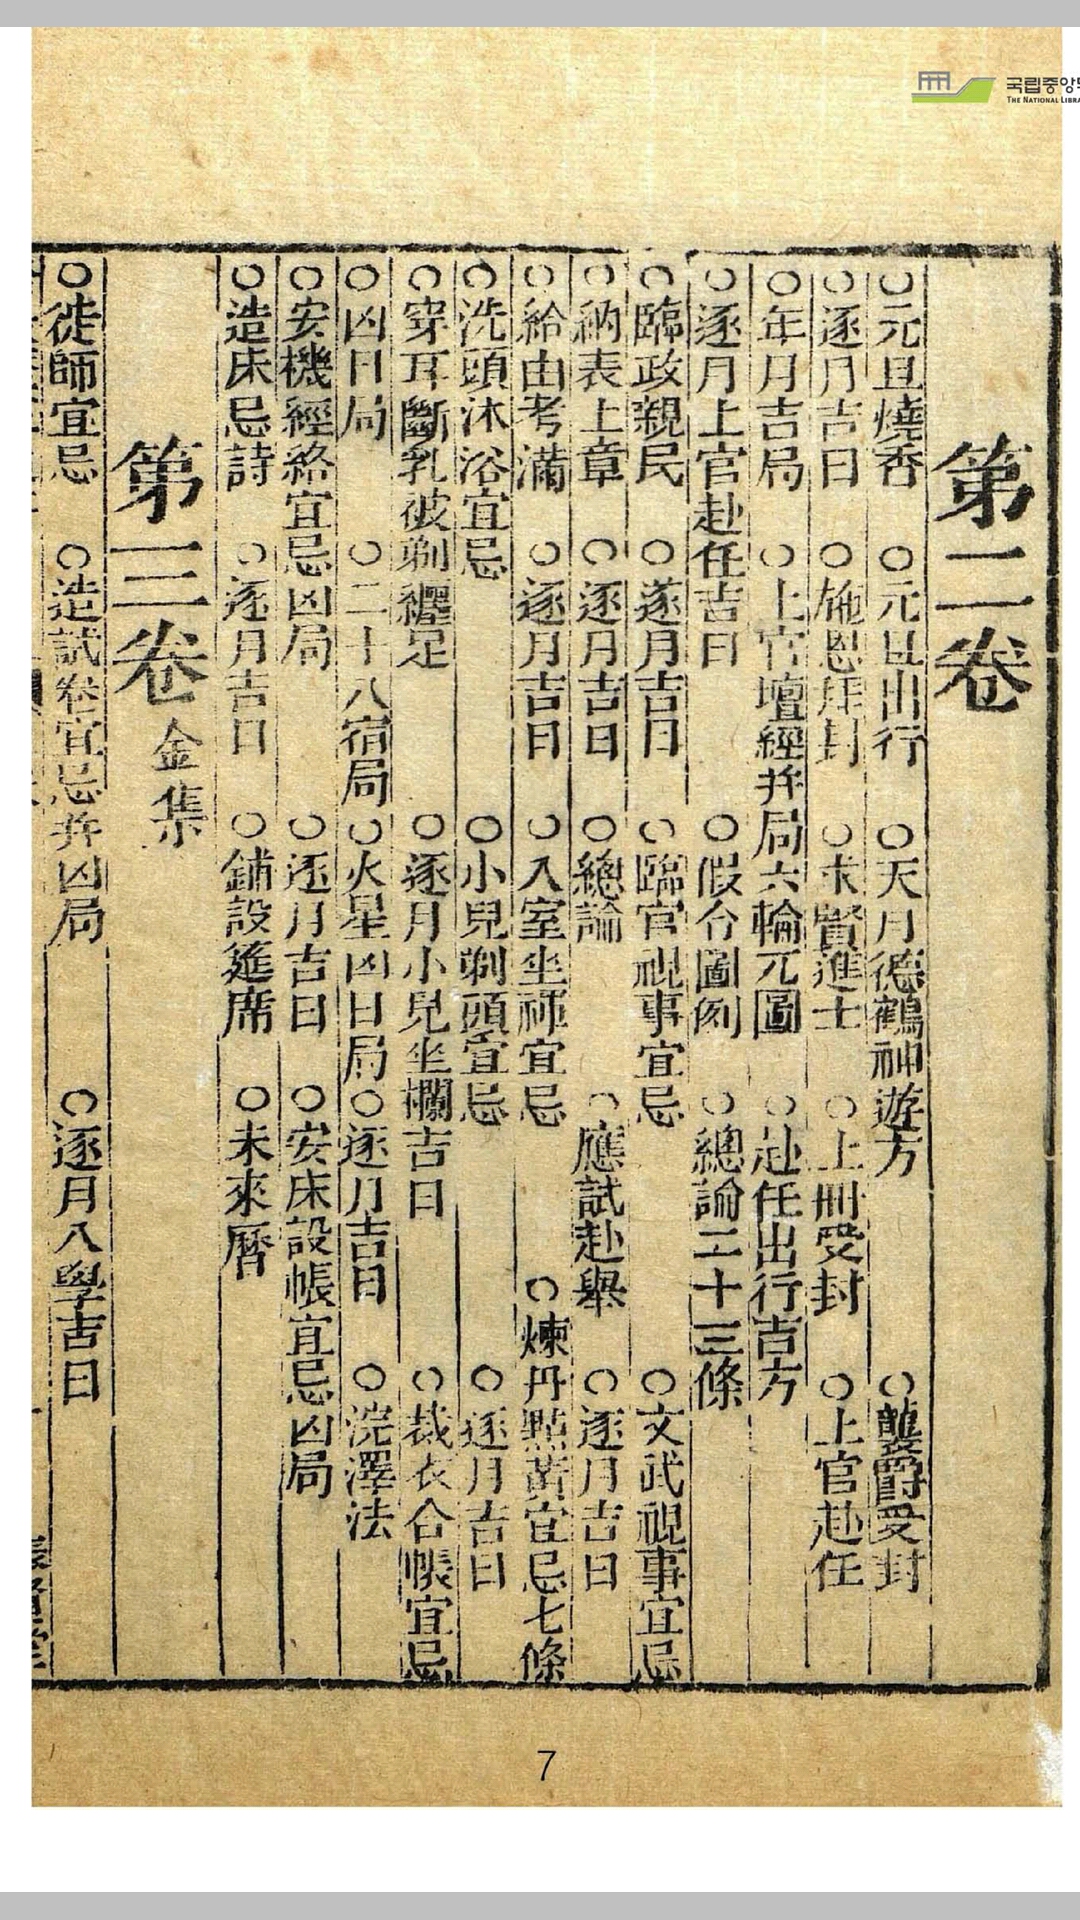 국립중앙
THE NATIONAL LIBRA
第二卷
○元旦燒香 ○元旦出行 ○天月德鶴神遊方 ○襲爵受封
○逐月吉日 ○施恩拜封 ○求賢進士 ○上冊受封 ○上官赴任
○年月吉局 ○上官壇經并局六輪兀圖 ○赴任出行吉方
○逐月上官赴任吉日 ○假令圖例 ○總論二十三條
○臨政親民 ○逐月吉日 ○臨官視事宜忌 ○文武視事宜忌
○納表上章 ○逐月吉日 ○總論 ○應試赴舉 ○逐月吉日
○給由考滿 ○逐月吉日 ○入室坐禪宜忌 ○煉丹點黃宜忌七條
○洗頭沐浴宜忌 ○小兒剃頭宜忌 ○逐月吉日
○穿耳斷乳被剃纏足 ○逐月小兒坐欄吉日 ○裁衣合帳宜忌
○凶日局 ○二十八宿局 ○火星凶日局 ○逐月吉日 ○浣澤法
○安機經絡宜忌凶局 ○逐月吉日 ○安床設帳宜忌凶局
○造床忌詩 ○逐月吉日 ○鋪設筵席 ○未來曆
第三卷 金集
○徒師宜忌 ○造試卷宜忌并凶局 ○逐月入學吉日
7